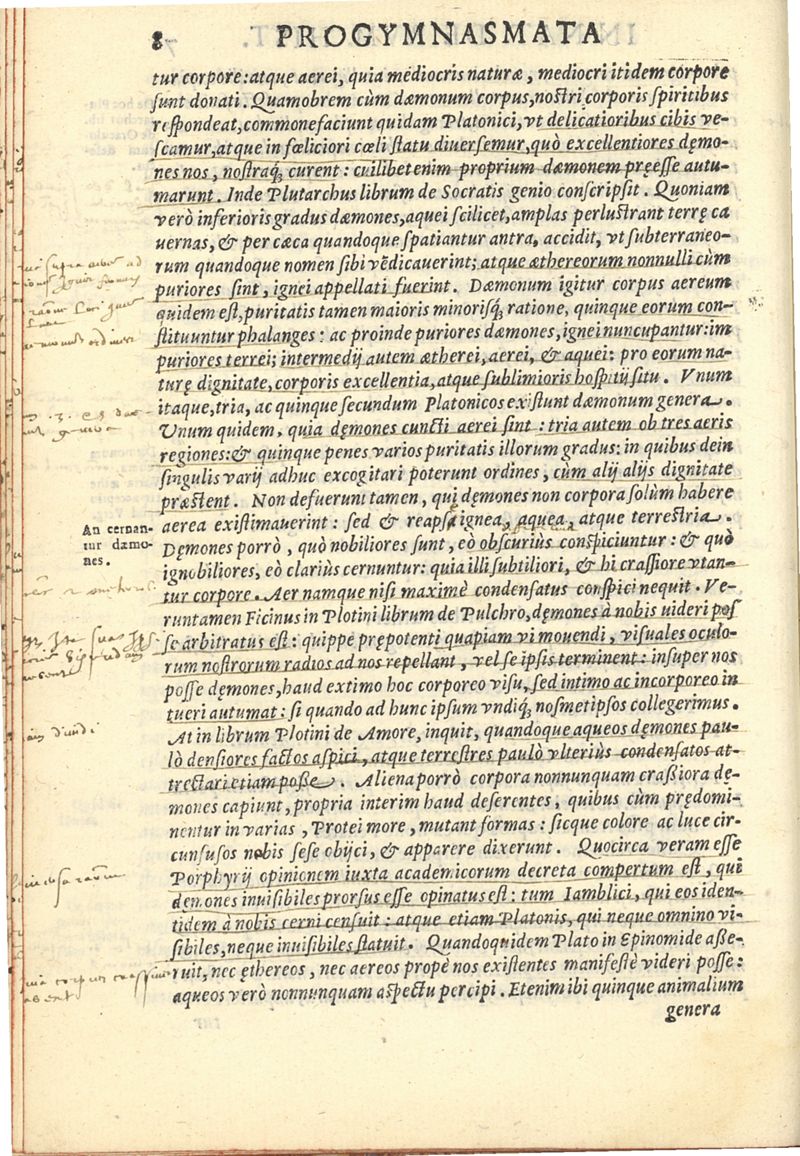 8 PROGYMNASMATA
tur corpore: atque aerei, quia mediocris naturæ, mediocri itidem corpore
sunt donati. Quamobrem cùm dæmonum corpus, nostri corporis spiritibus
respondeat, commonefaciunt quidam Platonici, vt delicatioribus cibis ve-
scamur, atque in fœliciori cœli statu diuersemur, quò excellentiores dęmo-
nes nos, nostraq́; curent: cuilibet enim proprium dæmonem pręesse autu-
marunt. Inde Plutarchus librum de Socratis genio conscripsit. Quoniam
verò inferioris gradus dæmones, aquei scilicet, amplas perlustrant terrę ca
uernas, & per cæca quandoque spatiantur antra, accidit, vt subterraneo-
rum quandoque nomen sibi vēdicauerint; atque æthereorum nonnulli cùm
puriores sint, ignei appellati fuerint. Dæmonum igitur corpus aereum
quidem est, puritatis tamen maioris minorisq́; ratione, quinque eorum con-
stituuntur phalanges: ac proinde puriores dæmones, ignei nuncupantur: im
puriores terrei; intermedij autem ætherei, aerei, & aquei: pro eorum na-
turę dignitate, corporis excellentia, atque sublimioris hospitij situ. Vnum
itaque, tria, ac quinque secundum Platonicos existunt dæmonum genera.
Unum quidem, quia dęmones cuncti aerei sint: tria autem ob tres aeris
regiones: & quinque penes varios puritatis illorum gradus: in quibus dein
singulis varij adhuc excogitari poterunt ordines, cùm alij alijs dignitate
præstent. Non defuerunt tamen, qui dęmones non corpora solùm habere
An cernan-
tur dæmo-
nes.
aerea existimauerint: sed & reapsa ignea, aquea, atque terrestria.
Dęmones porrò, quò nobiliores sunt, eò obscuriùs conspiciuntur: & quò
ignobiliores, eò clariùs cernuntur: quia illi subtiliori, & hi crassiore vtan-
tur corpore. Aer namque nisi maximè condensatus conspici nequit. Ve-
runtamen Ficinus in Plotini librum de Pulchro, dęmones à nobis uideri pos
se arbitratus est: quippe prępotenti quapiam vi mouendi, visuales oculo-
rum nostrorum radios ad nos repellant, vel se ipsis terminent: insuper nos
posse dęmones, haud extimo hoc corporeo visu, sed intimo ac incorporeo in
tueri autumat: si quando ad hunc ipsum vndiq́; nosmetipsos collegerimus.
At in librum Plotini de Amore, inquit, quandoque aqueos dęmones pau-
lò densiores factos aspici, atque terrestres paulò vlteriùs condensatos at-
trectari etiam posse. Aliena porrò corpora nonnunquam crassiora dę-
mones capiunt, propria interim haud deserentes, quibus cùm prędomi-
nentur in varias, Protei more, mutant formas: sicque colore ac luce cir-
cunfusos nobis sese obijci, & apparere dixerunt. Quocirca veram esse
Porphyrij opinionem iuxta academicorum decreta compertum est, qui
dęmones inuisibiles prorsus esse opinatus est: tum Iamblici, qui eos iden-
tidem à nobis cerni censuit: atque etiam Platonis, qui neque omnino vi-
sibiles, neque inuisibiles statuit. Quandoquidem Plato in Epinomide asse-
ruit, nec ęthereos, nec aereos propè nos existentes manifestè videri posse:
aqueos verò nonnunquam aspectu percipi. Etenim ibi quinque animalium
genera